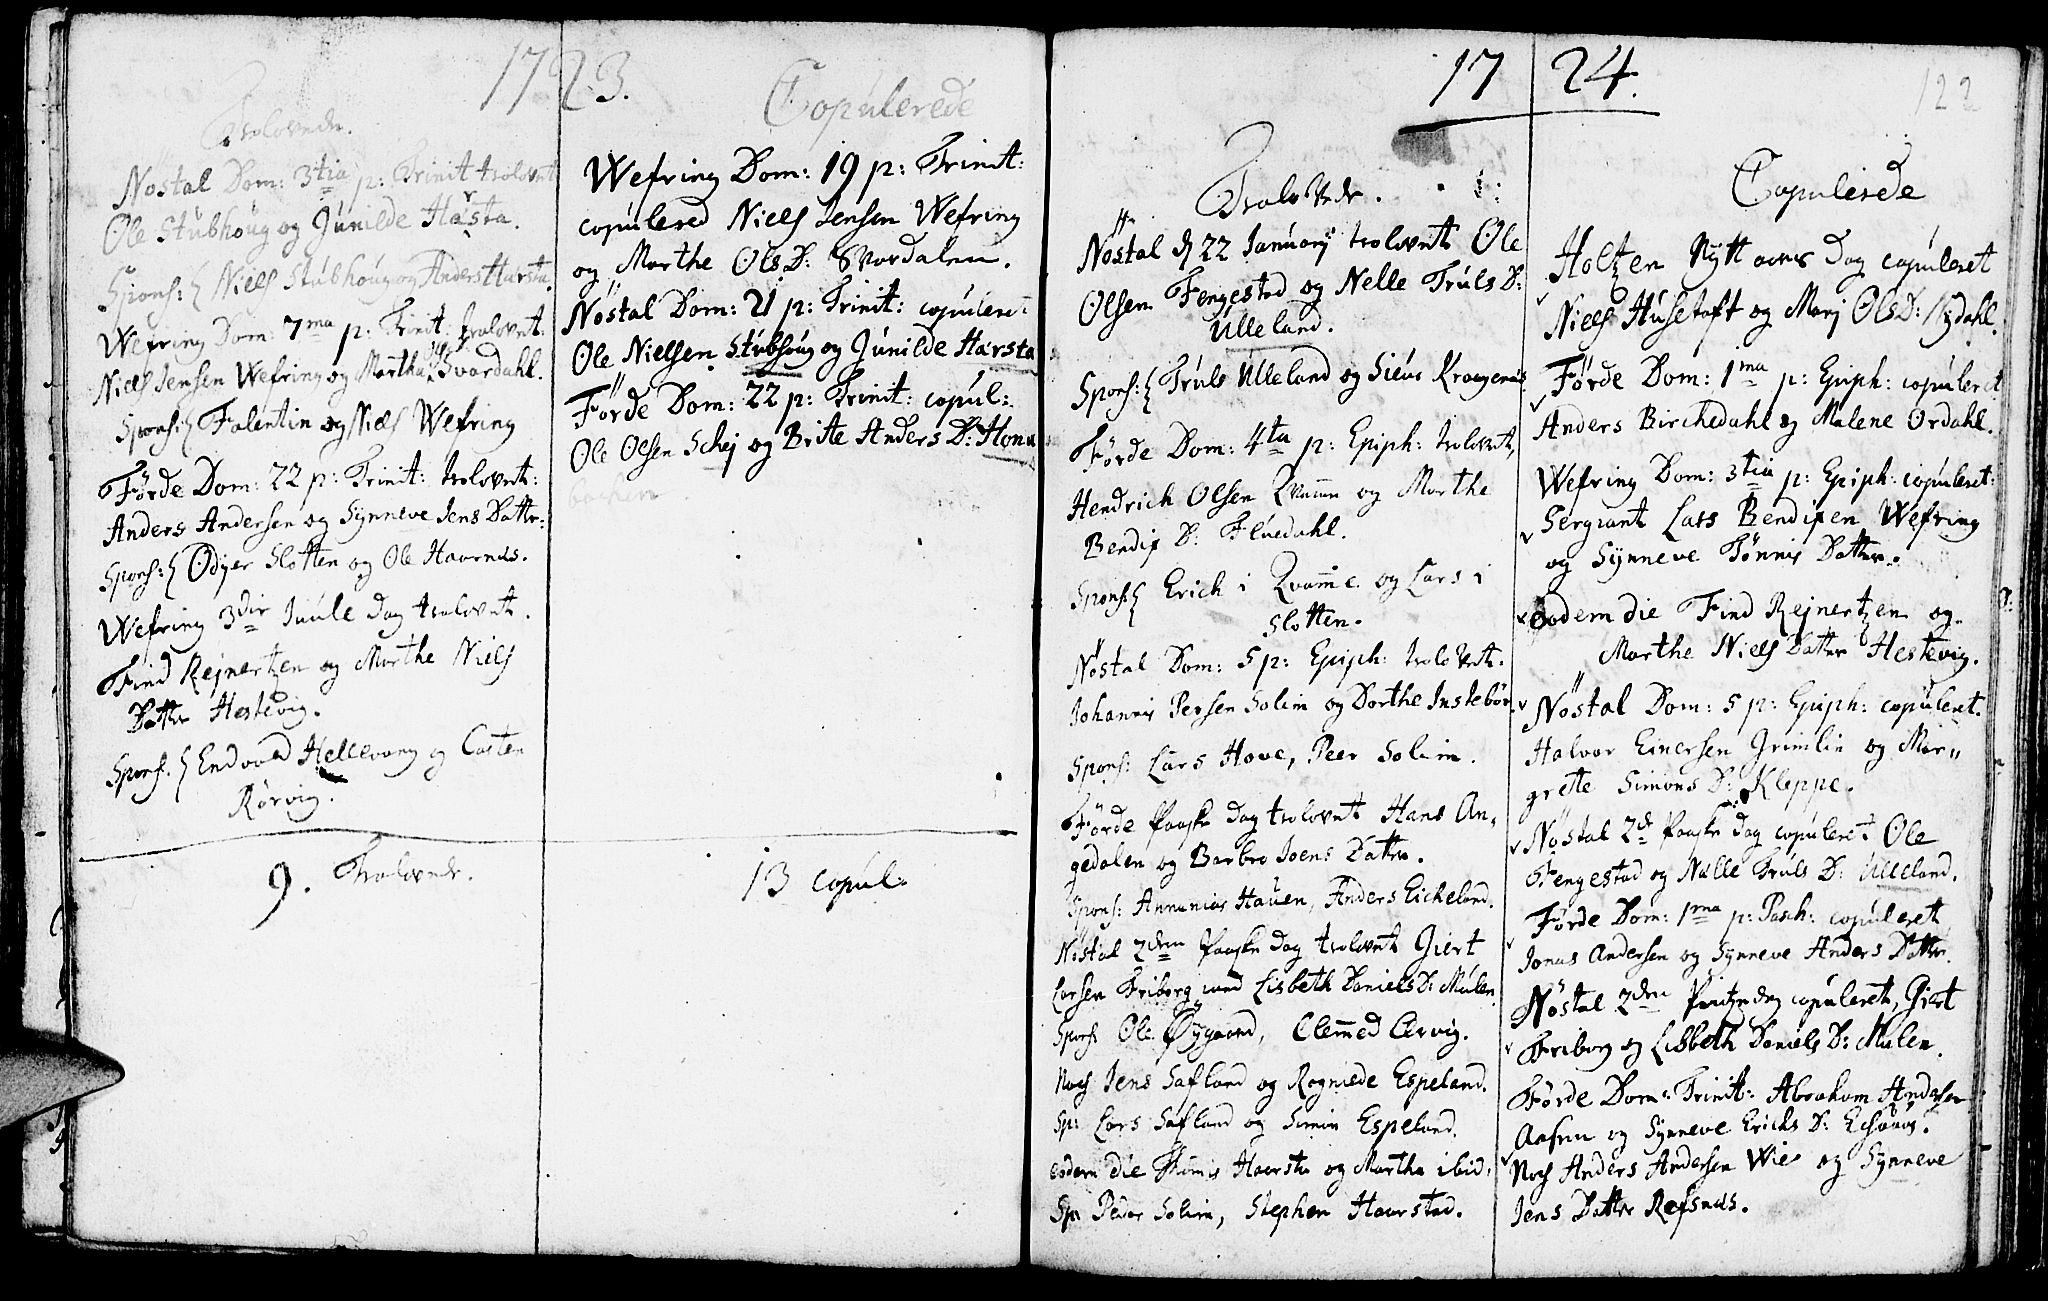 1723.
Trolovede.
Nöstal Dom: 3tia p: Trinit trolovet
Ole Stubhoug og Gunilde Harsta.
Spons: { Niels Stubhoug og Anders Harsta.
Wefring Dom: 7ma p: Trinit: trolovet.
Niels Jensen Wefring og Martha Ols D: Svardahl.
Spons: { Falentin og Niels Wefring
Förde Dom: 22 p: Trinit: trolovet:
Anders Andersen og Synneve Jens Datter:
Spons: { Odyer Slotten og Ole Haarnæs.
Wefring 3die Juule dag trolovet.
Find Rejnertzen og Marthe Niels
Datter Hestevig.
Spons. { Endvold Hellevang og Casten
Rörvig.
9. Trolovede.
Copulerede
Wefring Dom: 19 p: Trinit:
copulered Niels Jensen Wefring
og Marthe Ols D: Svardalen.
Nöstal Dom: 21 p: Trinit: copuleret
Ole Nielsen Stubhoug og Gunilde Harsta
Förde Dom: 22 p: Trinit: copul:
Ole Olsen Schej og Brite Anders D: Hona
bachen.
13 copul:
1724.
122
Trolovede.
Nöstal d 22 Januarij trolovet Ole
Olsen Fengestad og Nelle Truls D:
Ulleland.
Spons: { Truls Ulleland og Sieur Kraagenæs
Förde Dom: 4ta p: Epiph: trolovet,
Hendrich Olsen Qvamme og Marthe
Bendix D: Fluedahl.
Spons: { Erich i Qvamme og Lars i
Slotten.
Nöstal Dom: 5 p: Epiph: trolovet.
Johannis Persen Solim og Dorthe Instebör
Spons: Lars Hove, Peer Solim.
Förde Paaske dag trolovet Hans An„
gedalen og Barbro Joens Datter.
Spons: Annanias Hauen, Anders Eickeland.
Nöstal 2den Paaske dag trolovet Giert
Larsen Friborg med Lisbeth Daniels D: Mulen.
Spons: Ole Öygaard, Clemmed Ervig.
Noch Jens Safland og Ragnilde Espeland.
Sp: Lars Safland og Simon Espeland.
eodem die Thomis Haarsta og Martha ibid:
Sp: Peder Solim, Stephen Haarstad.
Copulerede
Holtzen Nytt aars Dag copuleret
Niels Husetoft og Marj Ols D: Nydahl.
Förde Dom: 1ma p: Epiph: copuleret
Anders Birchedahl og Malene Ordahl.
Wefring Dom: 3tia p: Epiph: copuleret:
Sergiant Lars Bendixen Wefring
og Synneve Tönnis Datter.
eodem die Find Rejnertzen og
Marthe Niels Datter Hestevig.
Nöstal Dom: 5 p: Epiph: copuleret.
Halvor Einersen Grimlin og Mar„
grete Simons D: Kleppe.
Nöstal 2d Paaske dag copuleret Ole
Fengestad og Nælle Truls D: Ulleland.
Förde Dom: 1ma p: Pasch: copuleret
Jonas Andersen og Synneve Anders Datter.
Nöstal 2den Pintzedag copuleret, Giert
Friborg og Lisbeth Daniels D: Mulen.
Förde Dom: Trinit: Abraham Andersen
Aasen og Synneve Erichs D:
Noch Anders Andersen Wie og Synneve
Jens Datter Refsnæs.